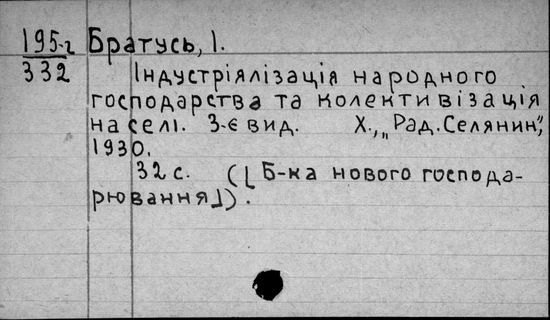 195-г Братусь, І.
332
Індустріялізація народного
господарства та колективізація
на селі. 3-є вид. Х., „Рад. Селянин“,
1930.
32 с. (⌊Б-ка нового господа-
рювання⌋).